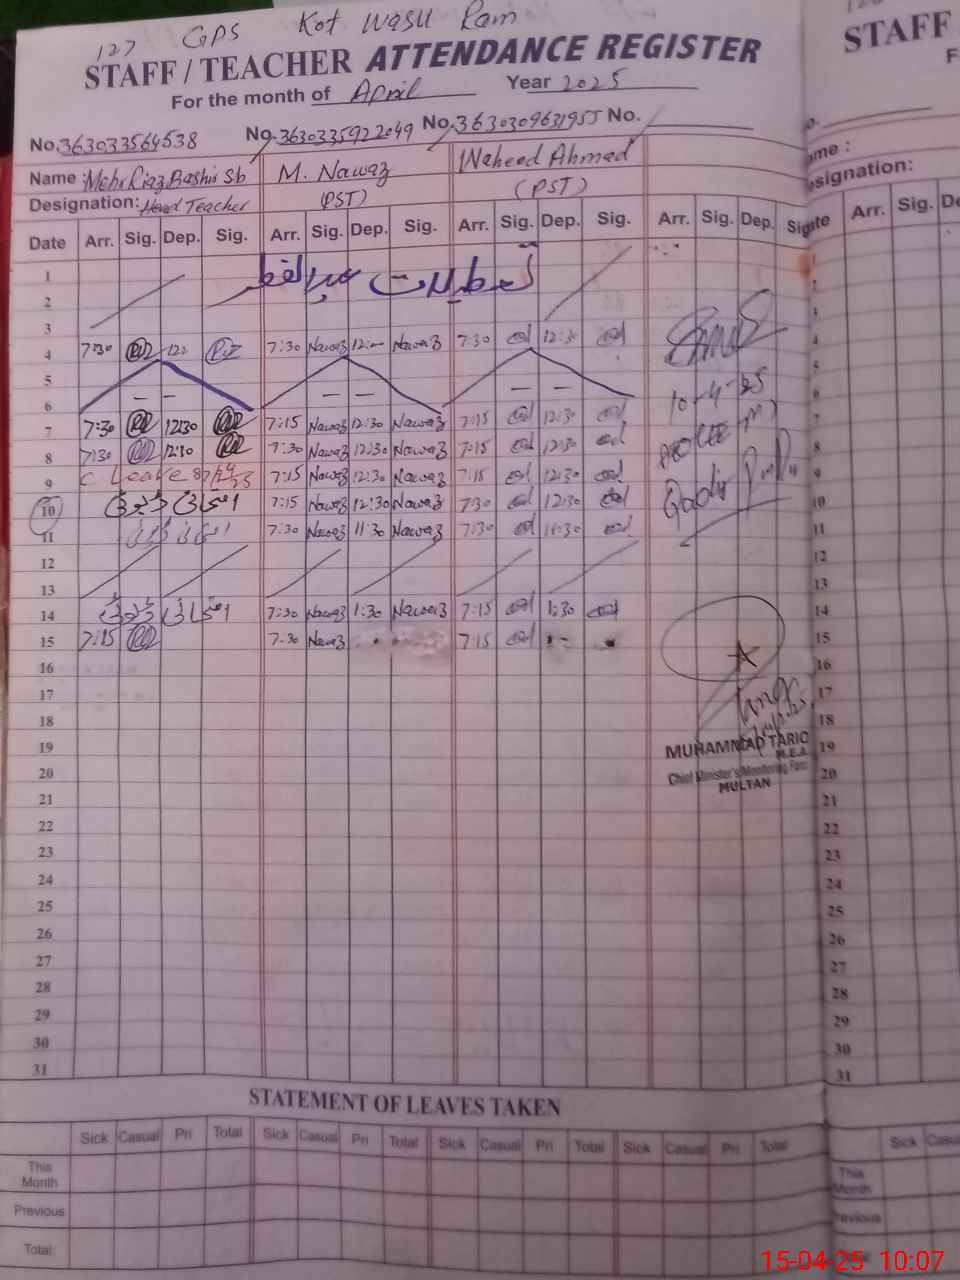 127 GPS Kot Wasu Ram
STAFF / TEACHER ATTENDANCE REGISTER
For the month of April Year 2025
No. 363033564538 No. 3630335922049 No. 3630309631955 No.
Name: Mehr Riaz Bashir Sb M. Nawaz Waheed Ahmed
Designation: Head Teacher (PST) (PST)
Date Arr. Sig. Dep. Sig. Arr. Sig. Dep. Sig. Arr. Sig. Dep. Sig. Arr. Sig. Dep. Sig
1 تعطیلات عیدالفطر
2
3
4 7:30 7:30 Nawaz 12:— Nawaz 7:30 12:30
5
6 — — — — — —
7 7:30 12:30 7:15 Nawaz 12:30 Nawaz 7:15 12:30
8 7:30 12:30 7:30 Nawaz 12:30 Nawaz 7:15 12:30
9 C Leave 7:15 Nawaz 12:30 Nawaz 7:15 12:30
10 7:15 Nawaz 12:30 Nawaz 7:30 12:30
11 7:30 Nawaz 11:30 Nawaz 7:30 11:30
12
13
14 7:30 Nawaz 1:30 Nawaz 7:15 1:30
15 7:15 7:30 Nawaz 7:15
16
17
18
19
20
21
22
23
24
25
26
27
28
29
30
31
10-4-25
MUHAMMAD TARIQ
M.E.A
Chief Minister's Monitoring Force
MULTAN
STATEMENT OF LEAVES TAKEN
Sick Casual Pri Total Sick Casual Pri Total Sick Casual Pri Total Sick Casual Pri Total
This Month
Previous
Total:
STAFF
Arr. Sig.
1
2
3
4
5
6
7
8
9
10
11
12
13
14
15
16
17
18
19
20
21
22
23
24
25
26
27
28
29
30
31
Sick
This Month
15-04-25 10:07